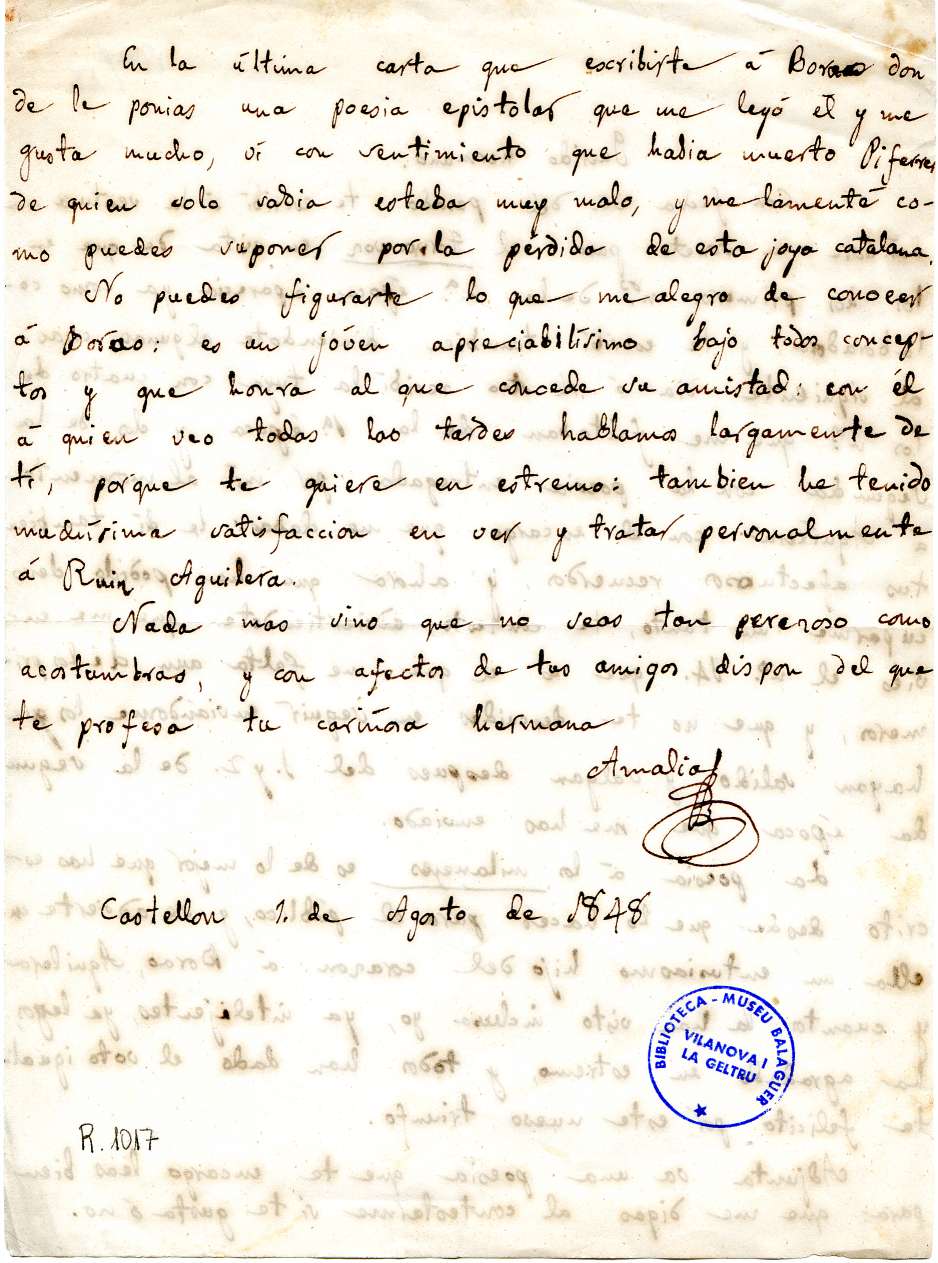 En la última carta que escribiste á Borao don
de le ponias una poesia epistolar que me leyó él y me
gusta mucho, ví con sentimiento que habia muerto Piferrer
de quien solo sabia estaba muy malo, y me lamenté co-
mo puedes suponer por la pérdida de esta joya catalana.
No puedes figurarte lo que me alegro de conocer
á Borao: es un jóven apreciabilísimo bajo todos concep-
tos y que honra al que concede su amistad: con él
á quien veo todas las tardes hablamos largamente de
tí, porque te quiere en estremo: tambien he tenido
muchísima satisfaccion en ver y tratar personalmente
á Ruiz Aguilera.
Nada mas sino que no seas tan perezoso como
acostumbras, y con afectos de tus amigos dispon del que
te profesa tu cariñosa hermana
Amalia
Castellon 1. de Agosto de 1848
BIBLIOTECA - MUSEU BALAGUER
VILANOVA I
LA GELTRU
R. 1017